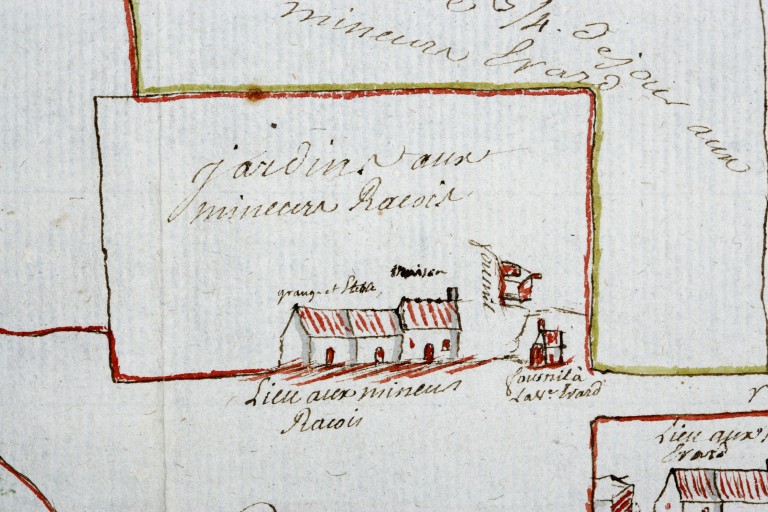 3/4. de jour aux
mineurs Evard
jardins aux
mineurs Racois
grange et Etable
Maison
fournil
Lieu aux mineurs
Racois
fournil à
la Ve. Evard
Lieu aux
Evard